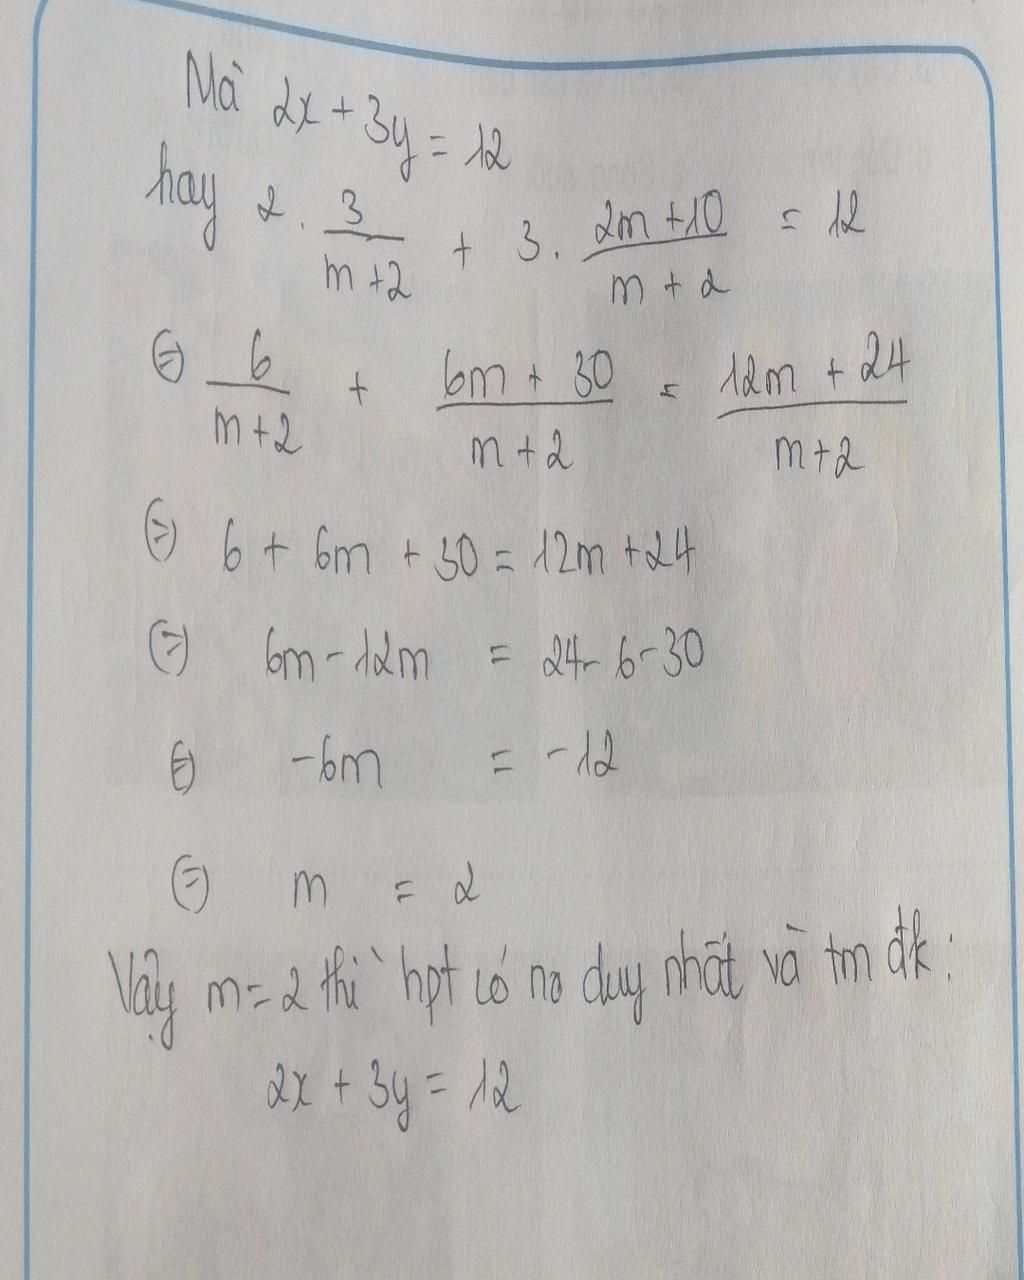 Mà 2x + 3y = 12
hay 2 . 3/(m+2) + 3 . (2m+10)/(m+2) = 12
⇔ 6/(m+2) + (6m + 30)/(m+2) = (12m + 24)/(m+2)
⇔ 6 + 6m + 30 = 12m + 24
⇔ 6m - 12m = 24 - 6 - 30
⇔ -6m = -12
⇔ m = 2
Vậy m = 2 thì hpt có no duy nhất và tm đk :
2x + 3y = 12